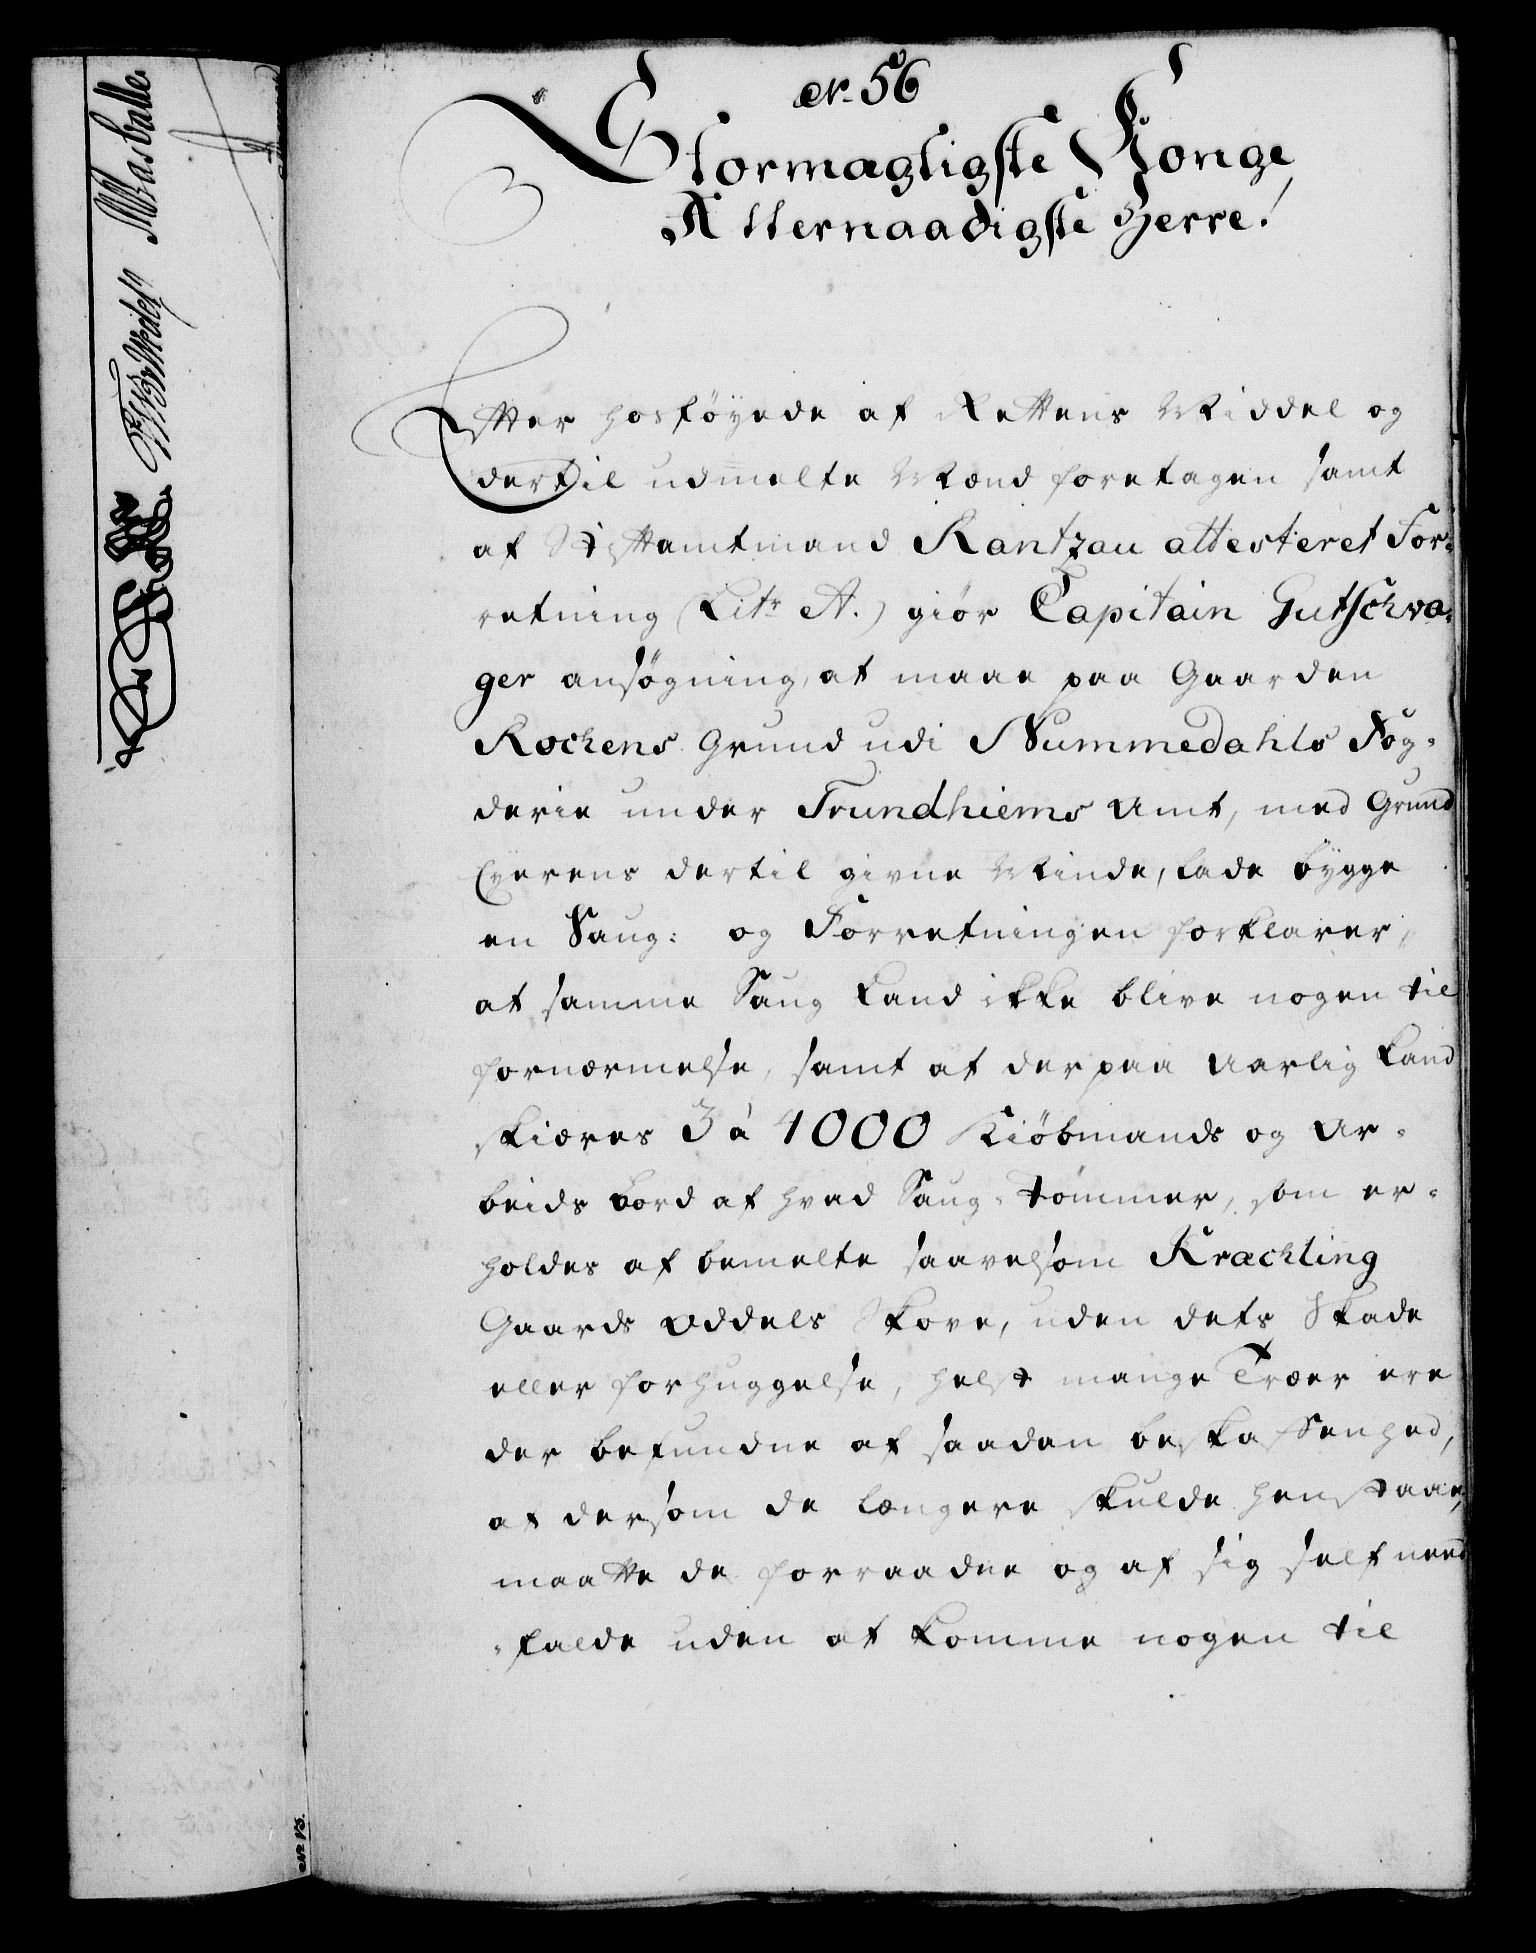 N. 56
Stormægtigste Konge
Allernaadigste Herre!
Efter hosføyede af Rettens Middel og
dertil udmelte Mænd foretagen samt
af Stiftamtmand Rantzau attesteret For=
retning (Litr A.) giør Capitain Gutschva=
ger ansøgning, at maae paa Gaarden
Rochens Grund udi Nummedahls Fog=
derie under Trundhiems Amt, med Grund
Eyerens dertil givne Minde, lade bygge
en Saug: og Forretningen forklarer,
at samme Saug kand ikke blive nogen til
fornærmelse, samt at derpaa aarlig kand
skiæres 3 à 4000 Kiöbmands og Ar=
beids bord af hvad Saug-tømmer, som er=
holdes af bemelte saavelsom Kræchling
Gaards Oddels Skove, uden dets Skade
eller forhuggelse, helst mange Træer ere
der befundne af saadan beskaffenhed,
at dersom de længere skulde henstaae,
maatte de forraadne og af sig self need
=falde uden at komme nogen til
Wasballe
No 13.